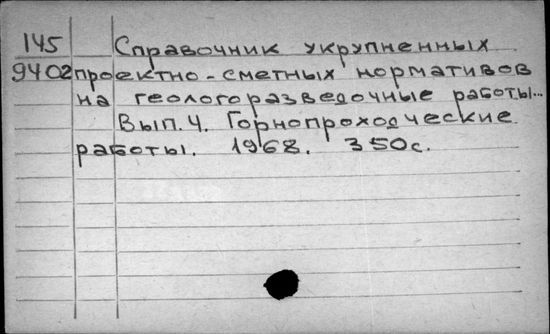 145 Справочник укрупненных
9402 проектно-сметных нормативов
на геологоразведочные работы...
Вып. 4. Горнопроходческие
работы. 1968. 350с.